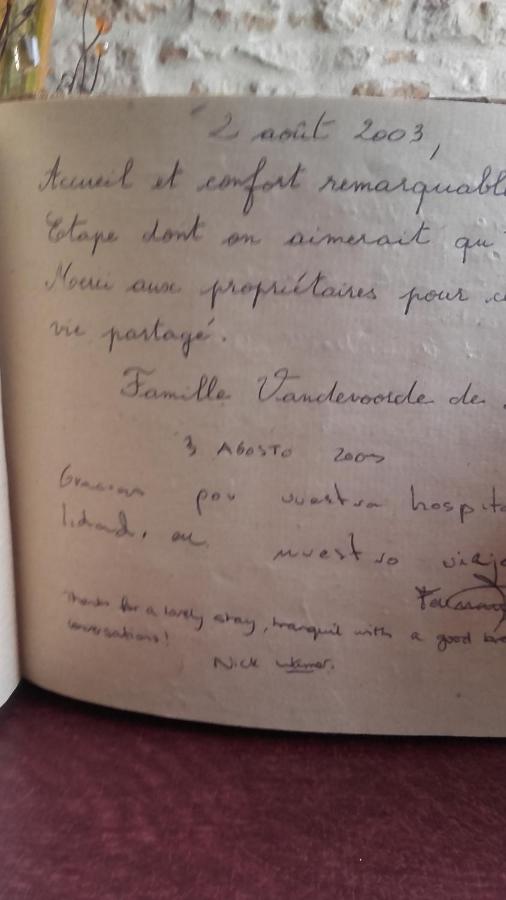 2 août 2003,
Accueil et confort remarquabl
Etape dont on aimerait qu'
Merci aux propriétaires pour ce
vie partagé.
Famille Vandevoorde de
3 AGOSTO 2003
Gracias por vuestra hospita
lidad, en nuestro viaje
Thanks for a lovely stay, tranquil with a good bre
conversations!
Nick